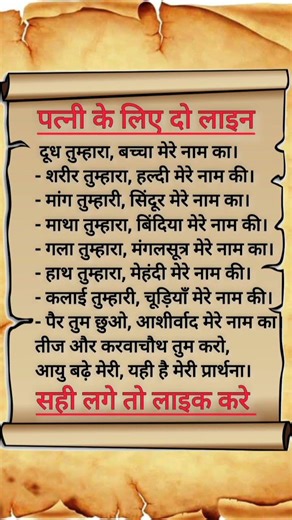 पत्नी के लिए दो लाइन
दूध तुम्हारा, बच्चा मेरे नाम का।
- शरीर तुम्हारा, हल्दी मेरे नाम की।
- मांग तुम्हारी, सिंदूर मेरे नाम का।
- माथा तुम्हारा, बिंदिया मेरे नाम की।
- गला तुम्हारा, मंगलसूत्र मेरे नाम का।
- हाथ तुम्हारा, मेहंदी मेरे नाम की।
- कलाई तुम्हारी, चूड़ियाँ मेरे नाम की।
- पैर तुम छुओ, आशीर्वाद मेरे नाम का
तीज और करवाचौथ तुम करो,
आयु बढ़े मेरी, यही है मेरी प्रार्थना।
सही लगे तो लाइक करे